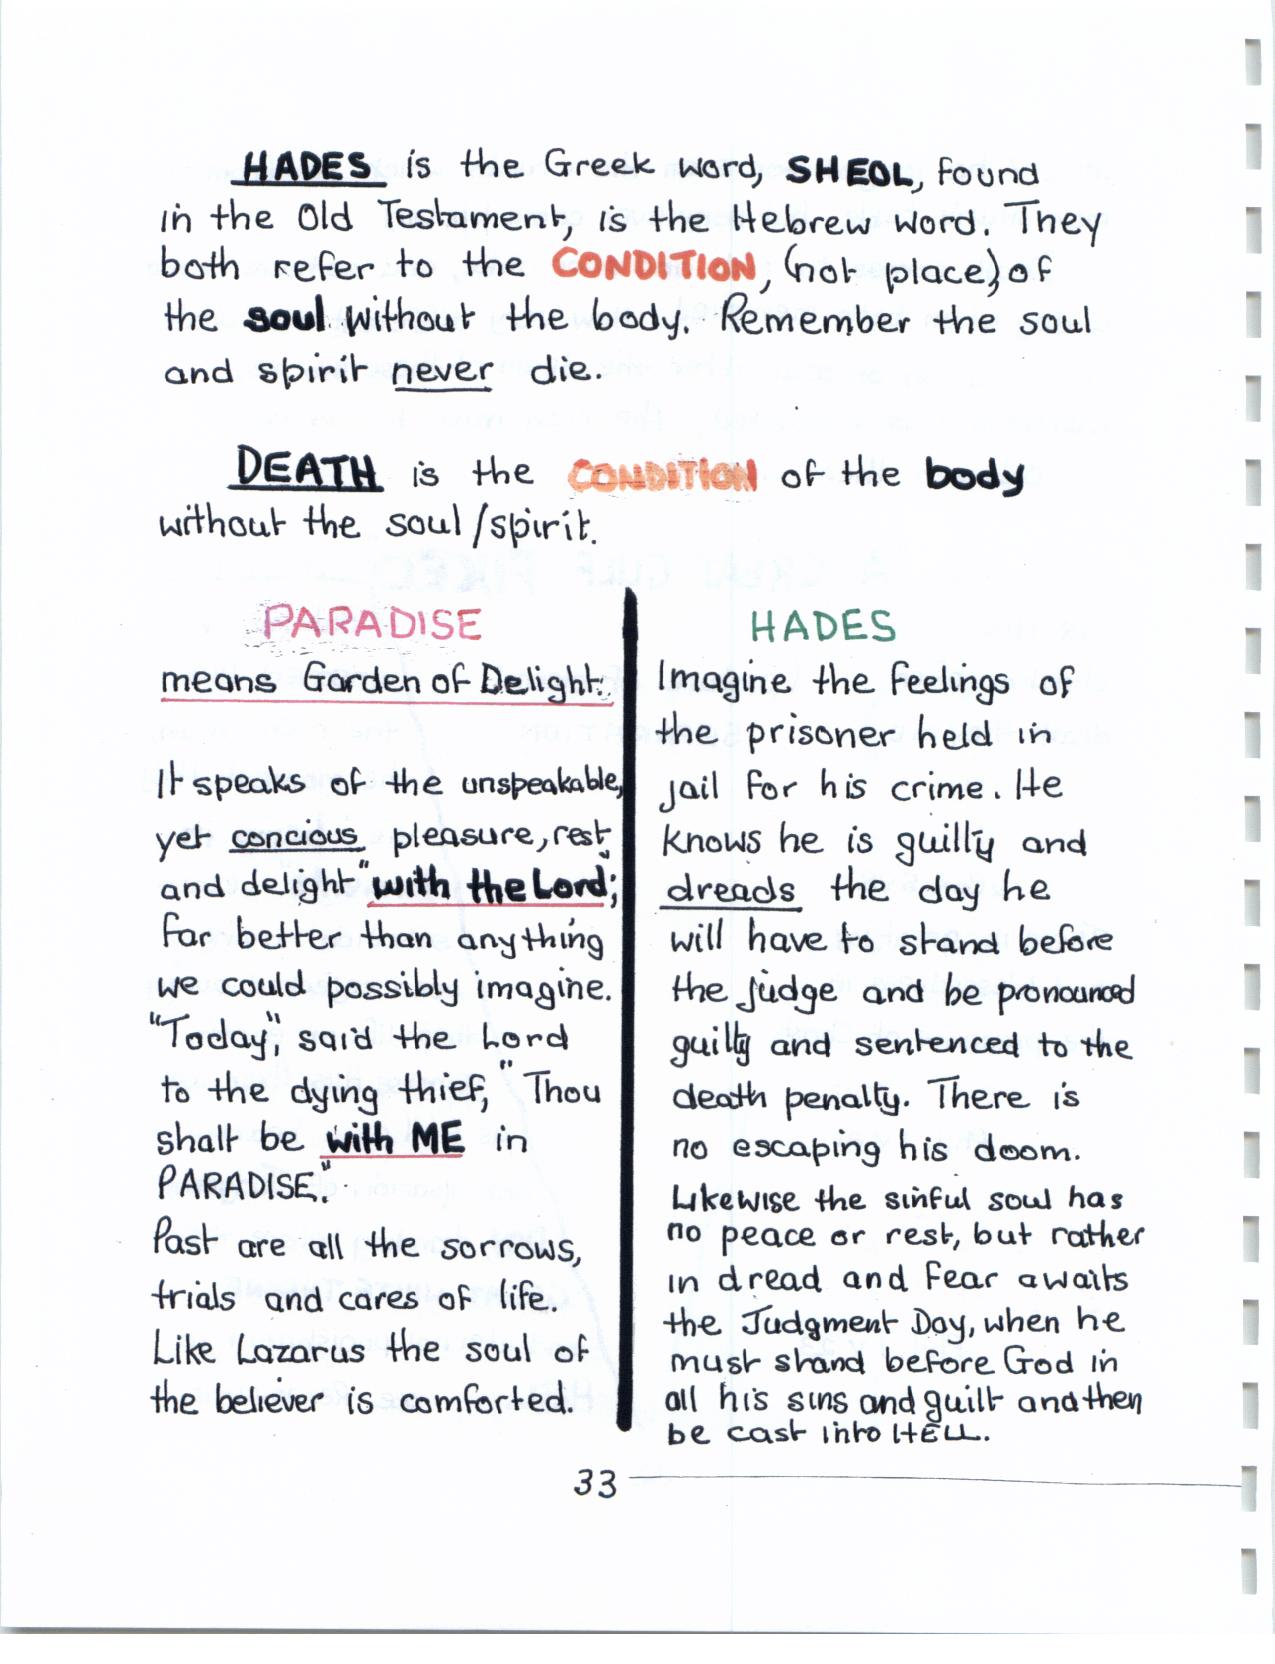 HADES is the Greek word, SHEOL, found
in the Old Testament, is the Hebrew word. They
both refer to the CONDITION, (not place) of
the soul without the body. Remember the soul
and spirit never die.
DEATH is the CONDITION of the body
without the soul/spirit.
PARADISE
means Garden of Delight.
It speaks of the unspeakable,
yet concious pleasure, rest,
and delight "with the Lord";
far better than anything
we could possibly imagine.
"Today", said the Lord
to the dying thief, "Thou
shalt be with ME in
PARADISE."
Past are all the sorrows,
trials and cares of life.
Like Lazarus the soul of
the believer is comforted.
HADES
Imagine the feelings of
the prisoner held in
jail for his crime. He
knows he is guilty and
dreads the day he
will have to stand before
the judge and be pronounced
guilty and sentenced to the
death penalty. There is
no escaping his doom.
Likewise the sinful soul has
no peace or rest, but rather
in dread and fear awaits
the Judgment Day, when he
must stand before God in
all his sins and guilt and then
be cast into HELL.
33